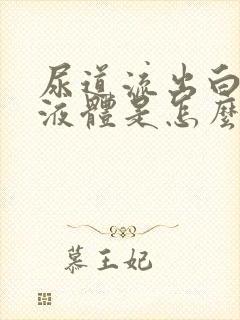 尿道流出白
液體是怎麼
慕王妃